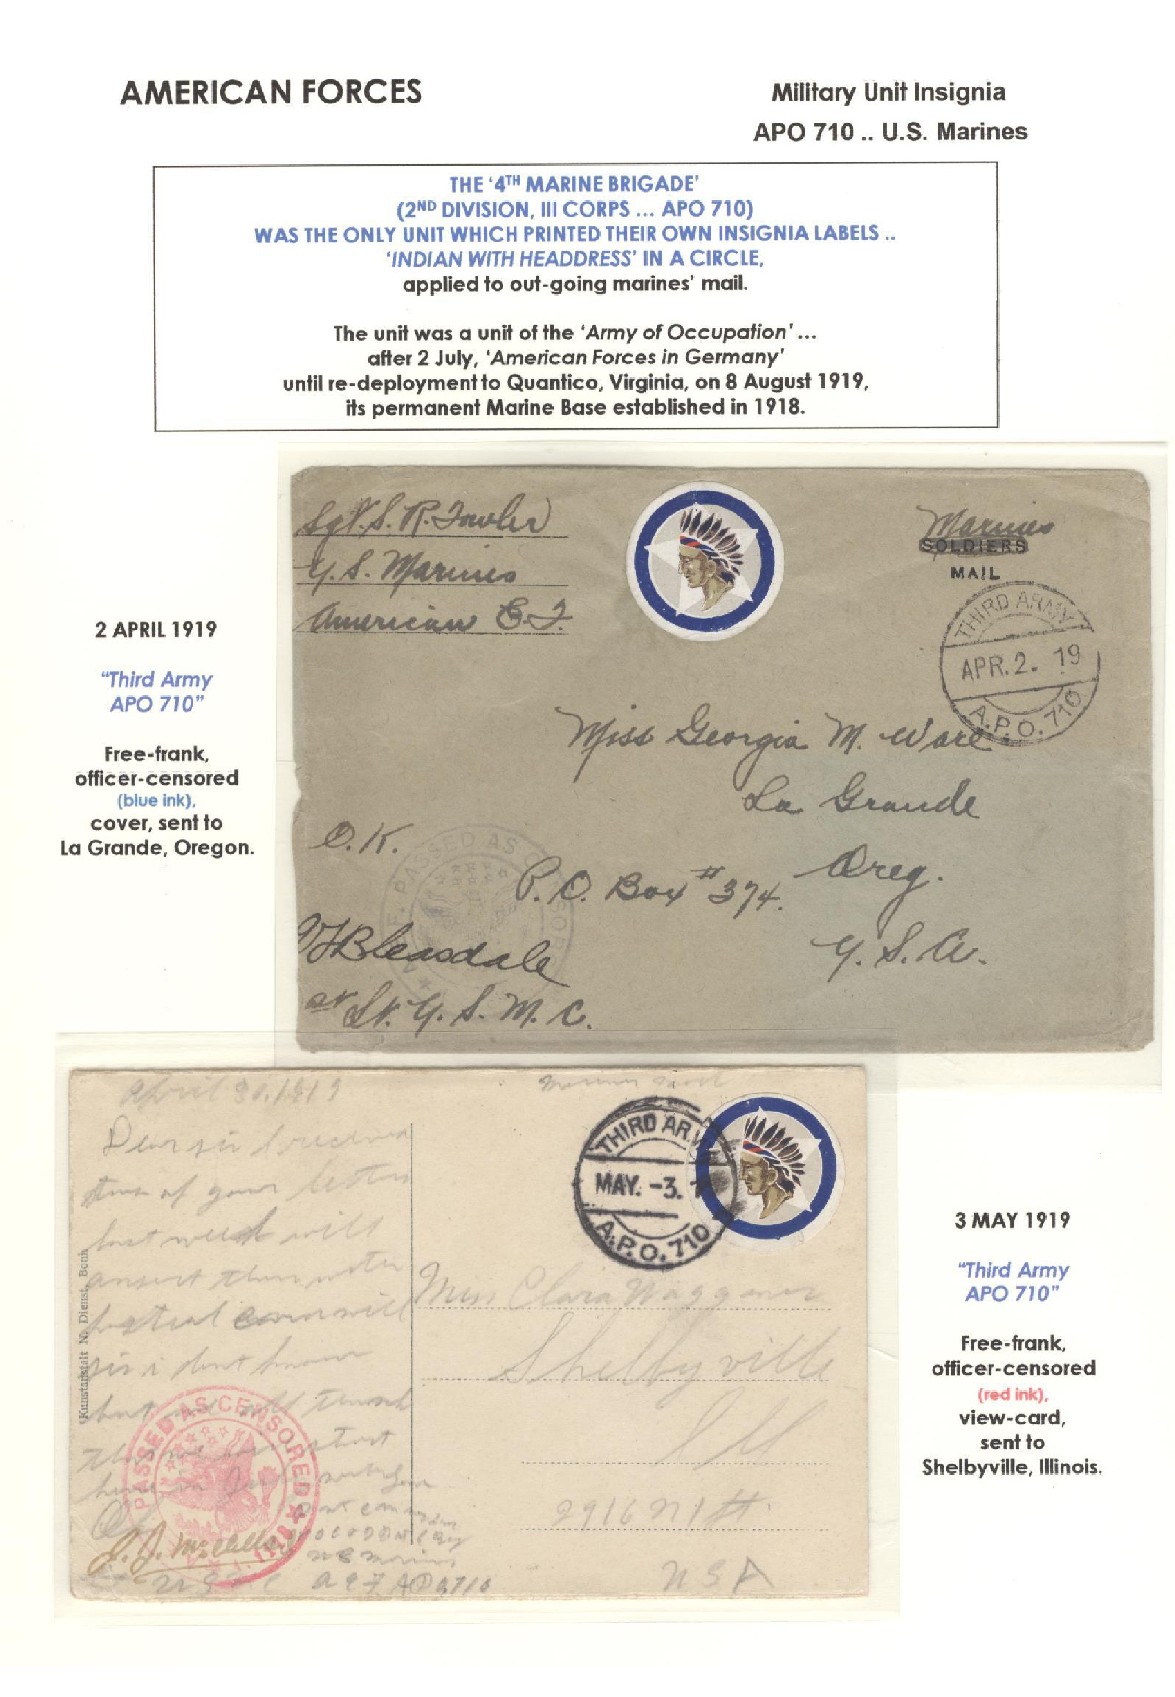 AMERICAN FORCES
Military Unit Insignia
APO 710 .. U.S. Marines
THE ‘4TH MARINE BRIGADE’
(2ND DIVISION, III CORPS ... APO 710)
WAS THE ONLY UNIT WHICH PRINTED THEIR OWN INSIGNIA LABELS ..
‘INDIAN WITH HEADDRESS’ IN A CIRCLE,
applied to out-going marines’ mail.
The unit was a unit of the ‘Army of Occupation’ ...
after 2 July, ‘American Forces in Germany’
until re-deployment to Quantico, Virginia, on 8 August 1919,
its permanent Marine Base established in 1918.
2 APRIL 1919
“Third Army
APO 710”
Free-frank,
officer-censored
(blue ink),
cover, sent to
La Grande, Oregon.
Sgt. S. R. Fowler
U. S. Marines
American E. F.
Marines
SOLDIERS
MAIL
THIRD ARMY
APR. 2. 19
A.P.O. 710
Miss Georgia M. Ware
La Grande
Oreg.
P. O. Box # 374.
U. S. A.
O.K.
PASSED AS CENSORED
Bleasdale
1st Lt. U. S. M. C.
April 30, 1919
THIRD ARMY
MAY. -3.
A.P.O. 710
Dear sir I received
two of your letters
last week will
answer them
Kunstanstalt N. Dienst, Bonn
Miss Clara Waggoner
Shelbyville
Ill
2916 N 1 St.
USA
PASSED AS CENSORED
A.P.O. 710
3 MAY 1919
“Third Army
APO 710”
Free-frank,
officer-censored
(red ink),
view-card,
sent to
Shelbyville, Illinois.